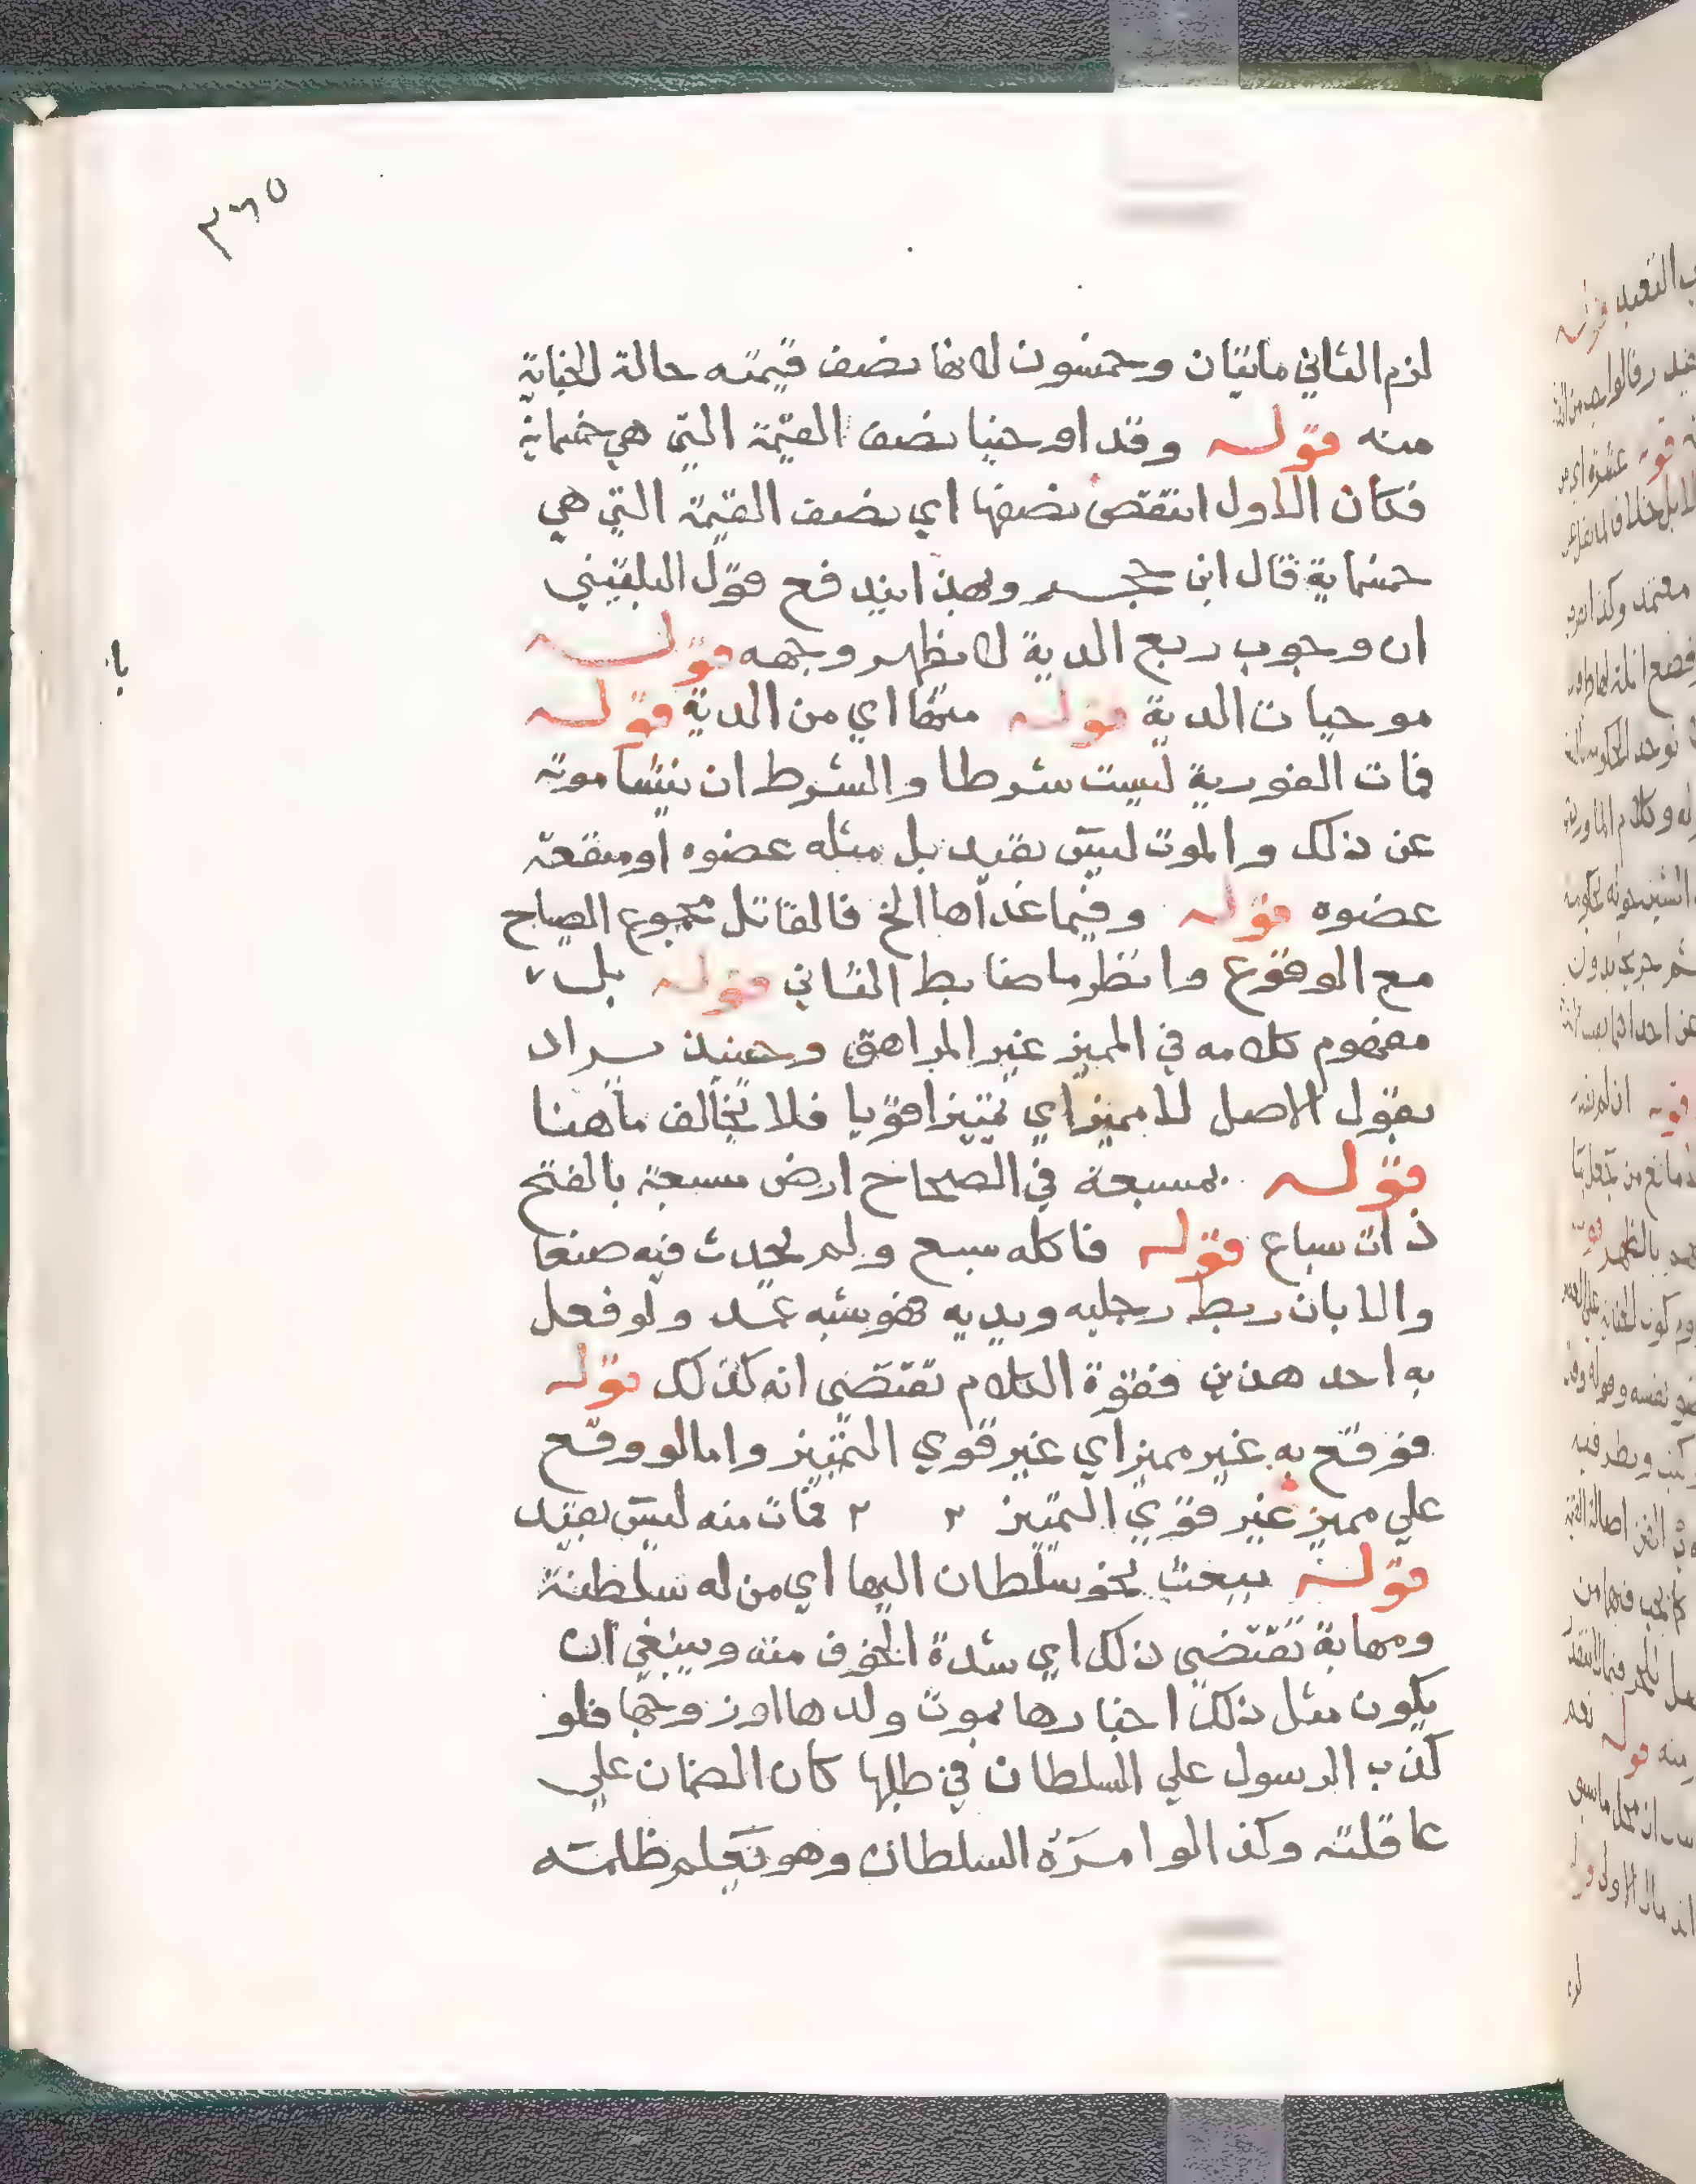 ٣٦٥
لزم الثاني مائتان وخمسون لانها نصف قيمته حالة الجناية
منه قوله وقد اوجبنا نصف القيمة التي هي خمسماية
فكان الاول انتقص نصفها اي نصف القيمة التي هي
خمسماية قال ابن حجر وبهذا يندفع قول البلقيني
ان وجوب ربع الدية لا يظهر وجهه قوله
با
موجبات الدية قوله منها اي من الدية قوله
فمات الفورية ليست شرطا والشرط ان ينشا موته
عن ذلك والموت ليس بقيد بل مثله عضوه او منفعة
عضوه قوله وفيما عداها الخ فالقاتل مجموع الصياح
مع الوقوع وانظر ما ضابط الثاني قوله بل
مفهوم كلامه في المميز غير المراهق وحينئذ يراد
بقول الاصل للامميز اي تمييزا قويا فلا يخالف ما هنا
قوله بمسبعة في الصحاح ارض مسبعة بالفتح
ذات سباع قوله فاكله سبع ولم يحدث فيه صنعا
والا بان ربط رجليه ويديه فهو شبه عمد ولو فعل
به احد هذين فقوة الكلام تقتضي انه كذلك قوله
فوقع به غير مميز اي غير قوي التمييز واما لو وقع
علي مميز غير قوي التمييز ٢ ٢ فمات منه ليس بقيد
قوله ببعث نحو سلطان اليها اي من له سلطنة
ومهابة تقتضي ذلك اي شدة الخوف منه وينبغي ان
يكون مثل ذلك اخبارها بموت ولدها او زوجها فلو
كذب الرسول علي السلطان في طلبها كان الضمان علي
عاقلته وكذا لو امره السلطان وهو يعلم ظلمه